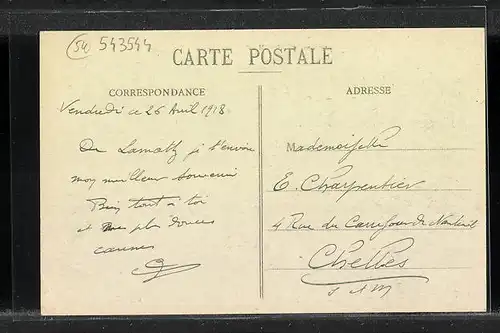 54 543544
CARTE POSTALE
CORRESPONDANCE
ADRESSE
Vendredi ce 26 Avril 1918
De Lamath je t'envoie
mon meilleur Souvenir
Bien tout à toi
et plus douces
Mademoiselle
E. Charpentier
4 Rue du Carrefour de Nanteuil
Chelles
S et M